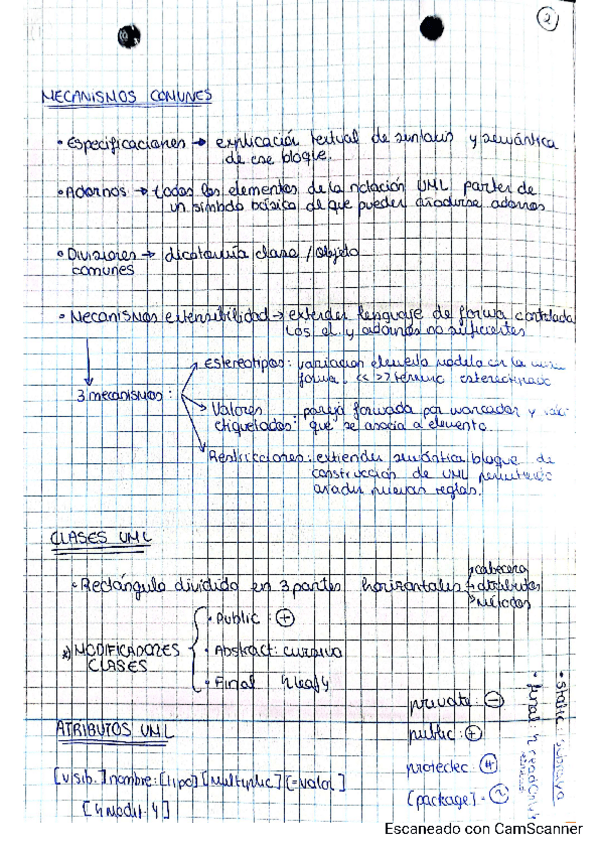 2
MECANISMOS COMUNES
• Especificaciones → explicación textual de sintaxis y semántica
de ese bloque.
• Adornos → todos los elementos de la notación UML parten de
un símbolo básico al que pueden añadirse adornos
• Divisiones → dicotomía clase / objeto
comunes
• Mecanismos extensibilidad → extender lenguaje de forma controlada
los el. y adornos no suficientes
3 mecanismos:
Estereotipos: variacion elemento modelo con la misma
forma. << >> término estereotipado
Valores
etiquetados: pareja formada por marcador y
que se asocia a elemento.
Restricciones: extienden semántica bloque de
construcción de UML
añadir nuevas reglas.
CLASES UML
• Rectángulo dividido en 3 partes horizontales
cabecera
atributos
métodos
*) MODIFICADORES
CLASES
• Public: +
• Abstract: cursiva
• Final {leaf}
ATRIBUTOS UML
[visib.] nombre: [tipo] [multiplic] [=valor]
[{modif.}]
private: -
public: +
protected: #
[package] - ~
• static: subraya
• final:
Escaneado con CamScanner